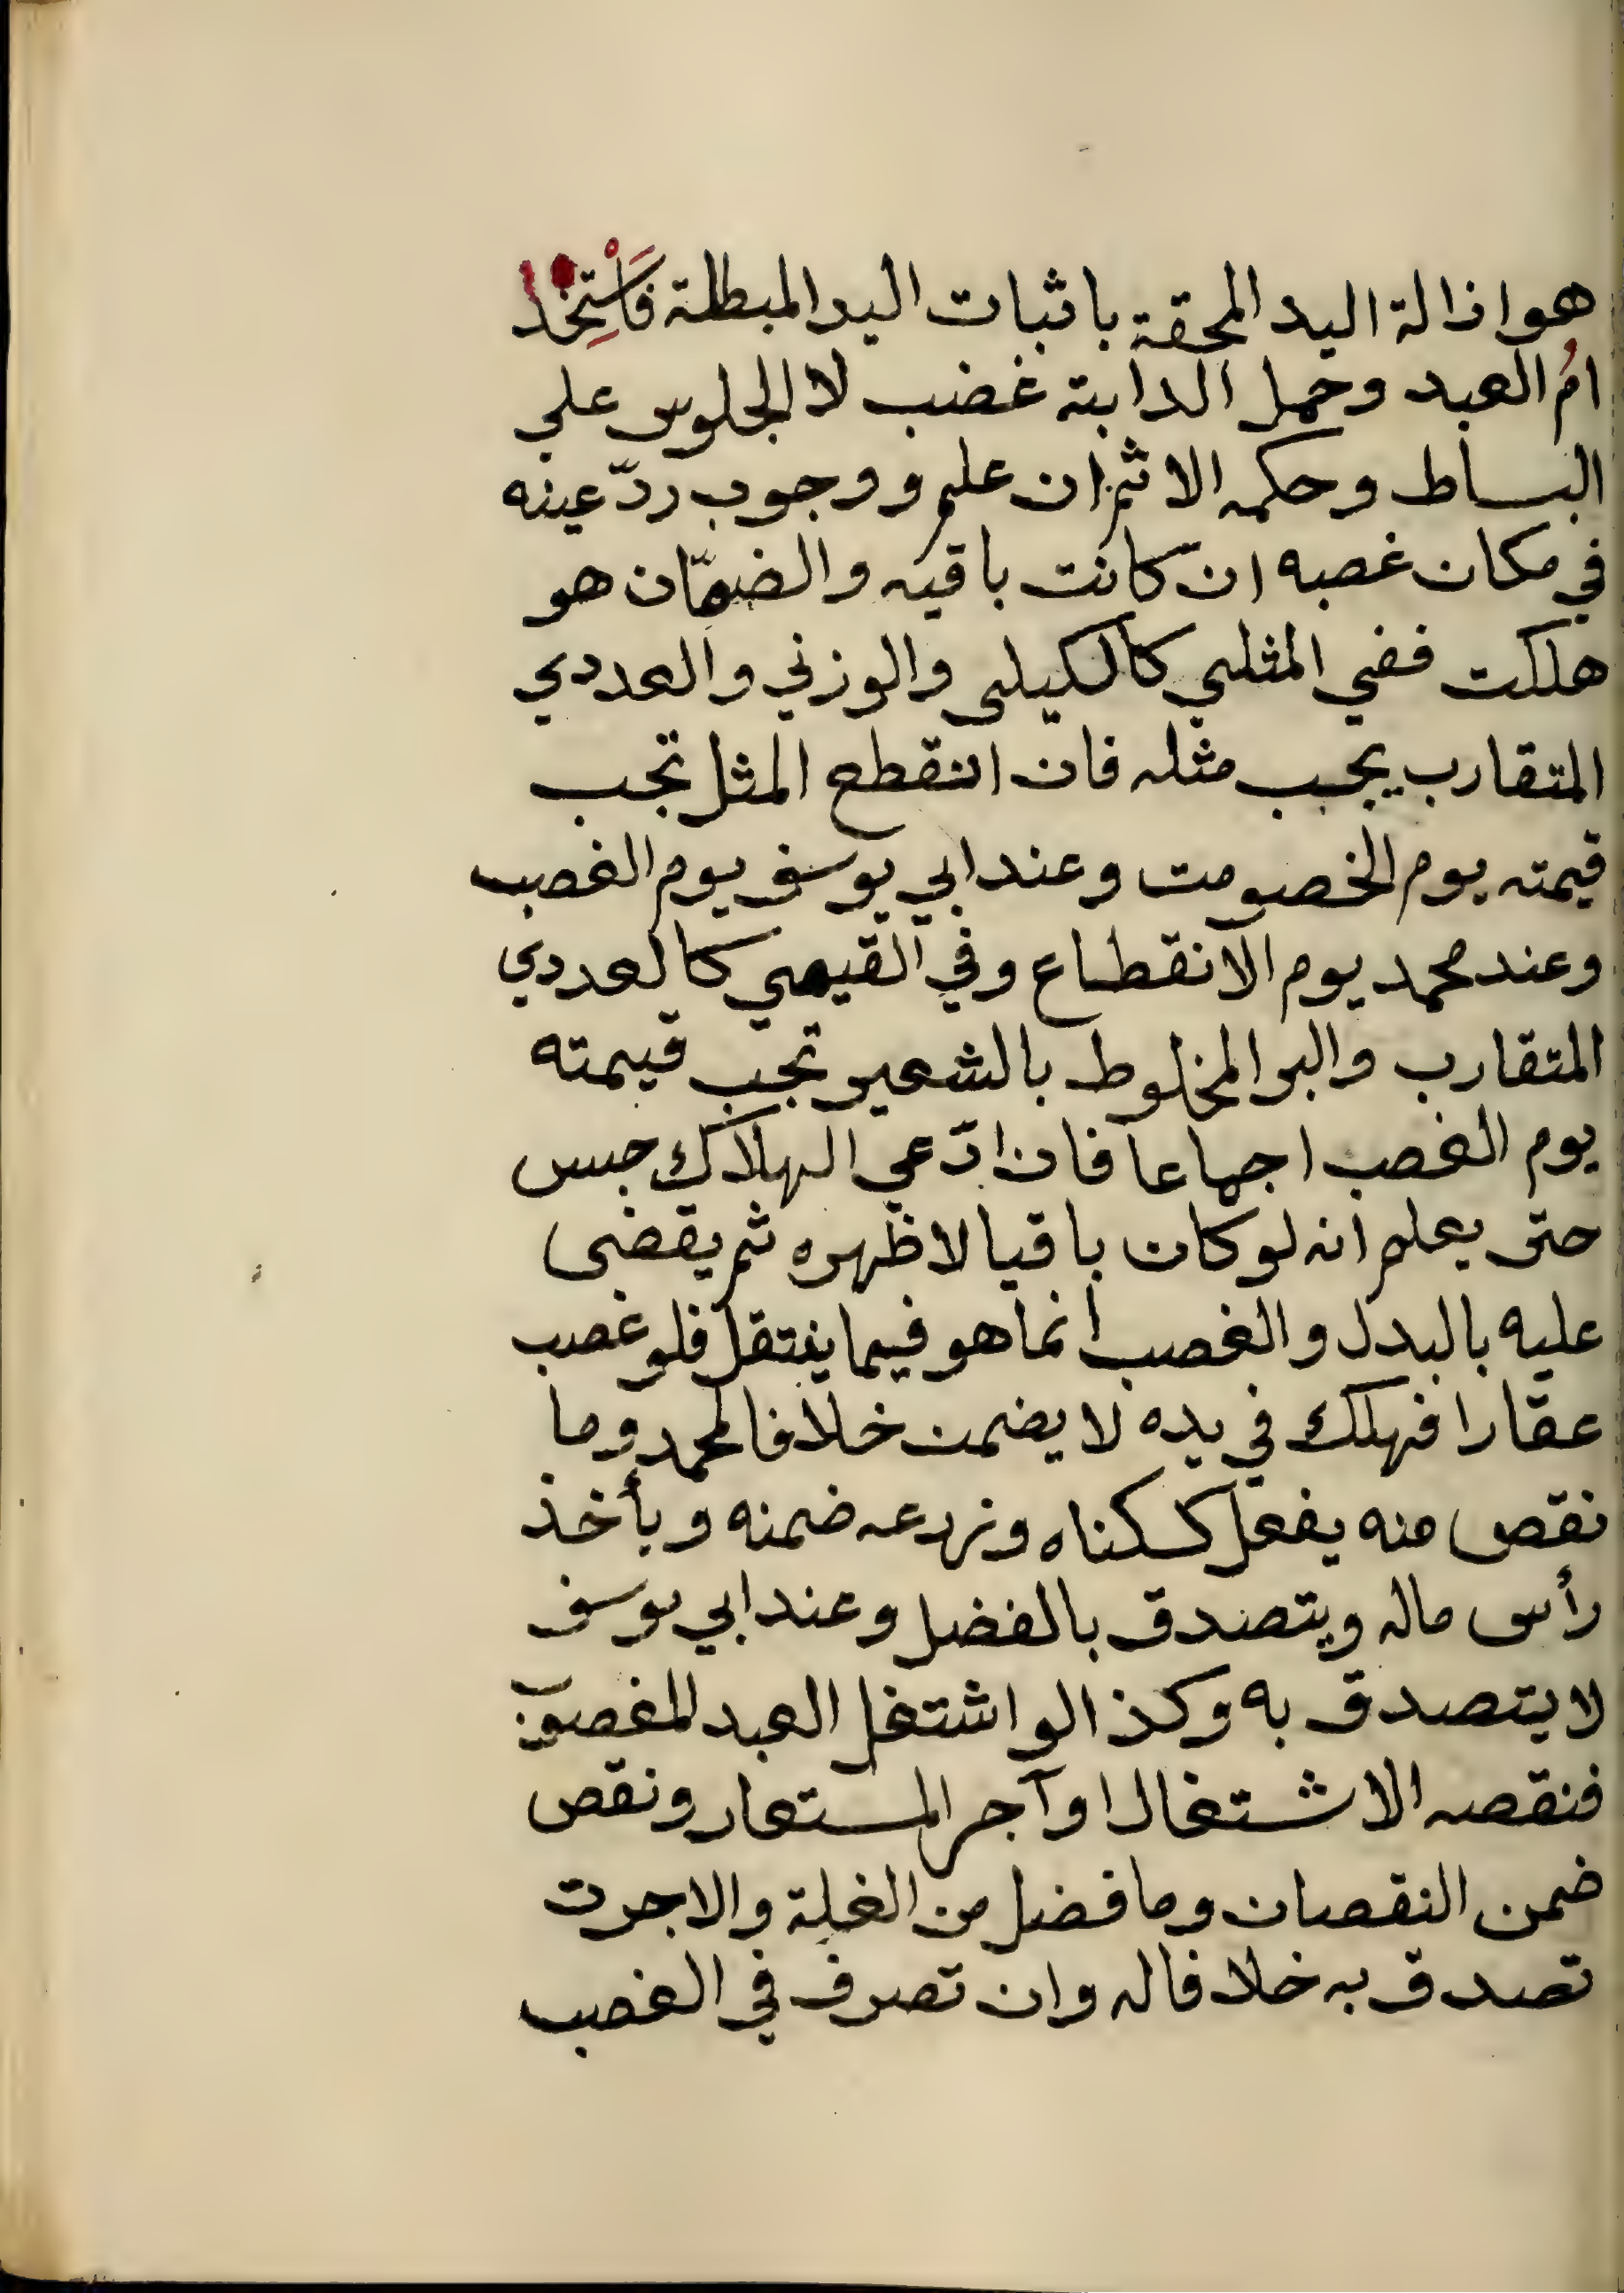 هو اذالة اليد المحقة باثبات اليد المبطلة فَاسْتِخْدا
امُ العبد وحمل الدابته غضب لا الجلوس علي
البساط وحكمه الاثم ان علم ووجوب ردّ عينه
في مكان غصبه ان كانت باقيه والضمّان هو
هلكت ففي المثلي كالكيلى والوزني والعددي
المتقارب يجب مثله فان انقطع المثل تجب
قيمته يوم الخصومت وعند ابي يوسف يوم الغصب
وعند محمد يوم الانقطاع وفي القيمي كالعددي
المتقارب والبر المخلوط بالشعير تجب قيمته
يوم الغصب اجماعا فان ادّعي الهلاك حبس
حتى يعلم انه لو كان باقيا لاظهره ثم يقضى
عليه بالبدل والغصب انما هو فيما ينتقل فلو غصب
عقارا فهلك في يده لا يضمن خلافا لمحمد وما
نقص منه يفعل كسكناه وزرعه ضمنه ويأخذ
رأس ماله ويتصدق بالفضل وعند ابي يوسف
لا يتصدق به وكذا لو اشتغل العبد المغصوب
فنقصه الاشتغال او آجر المستعار ونقص
ضمن النقصان وما فضل من الغلة والاجرت
تصدق به خلافا له وان تصرف في الغصب